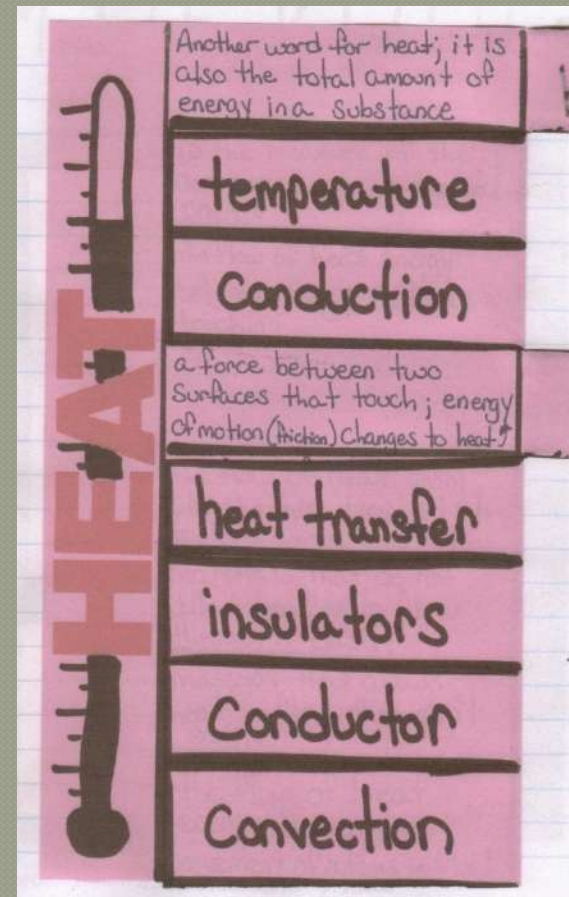 Another word for heat; it is
also the total amount of
energy in a substance
temperature
Conduction
a force between two
Surfaces that touch; energy
of motion (friction) Changes to heat
HEAT
heat transfer
insulators
Conductor
Convection